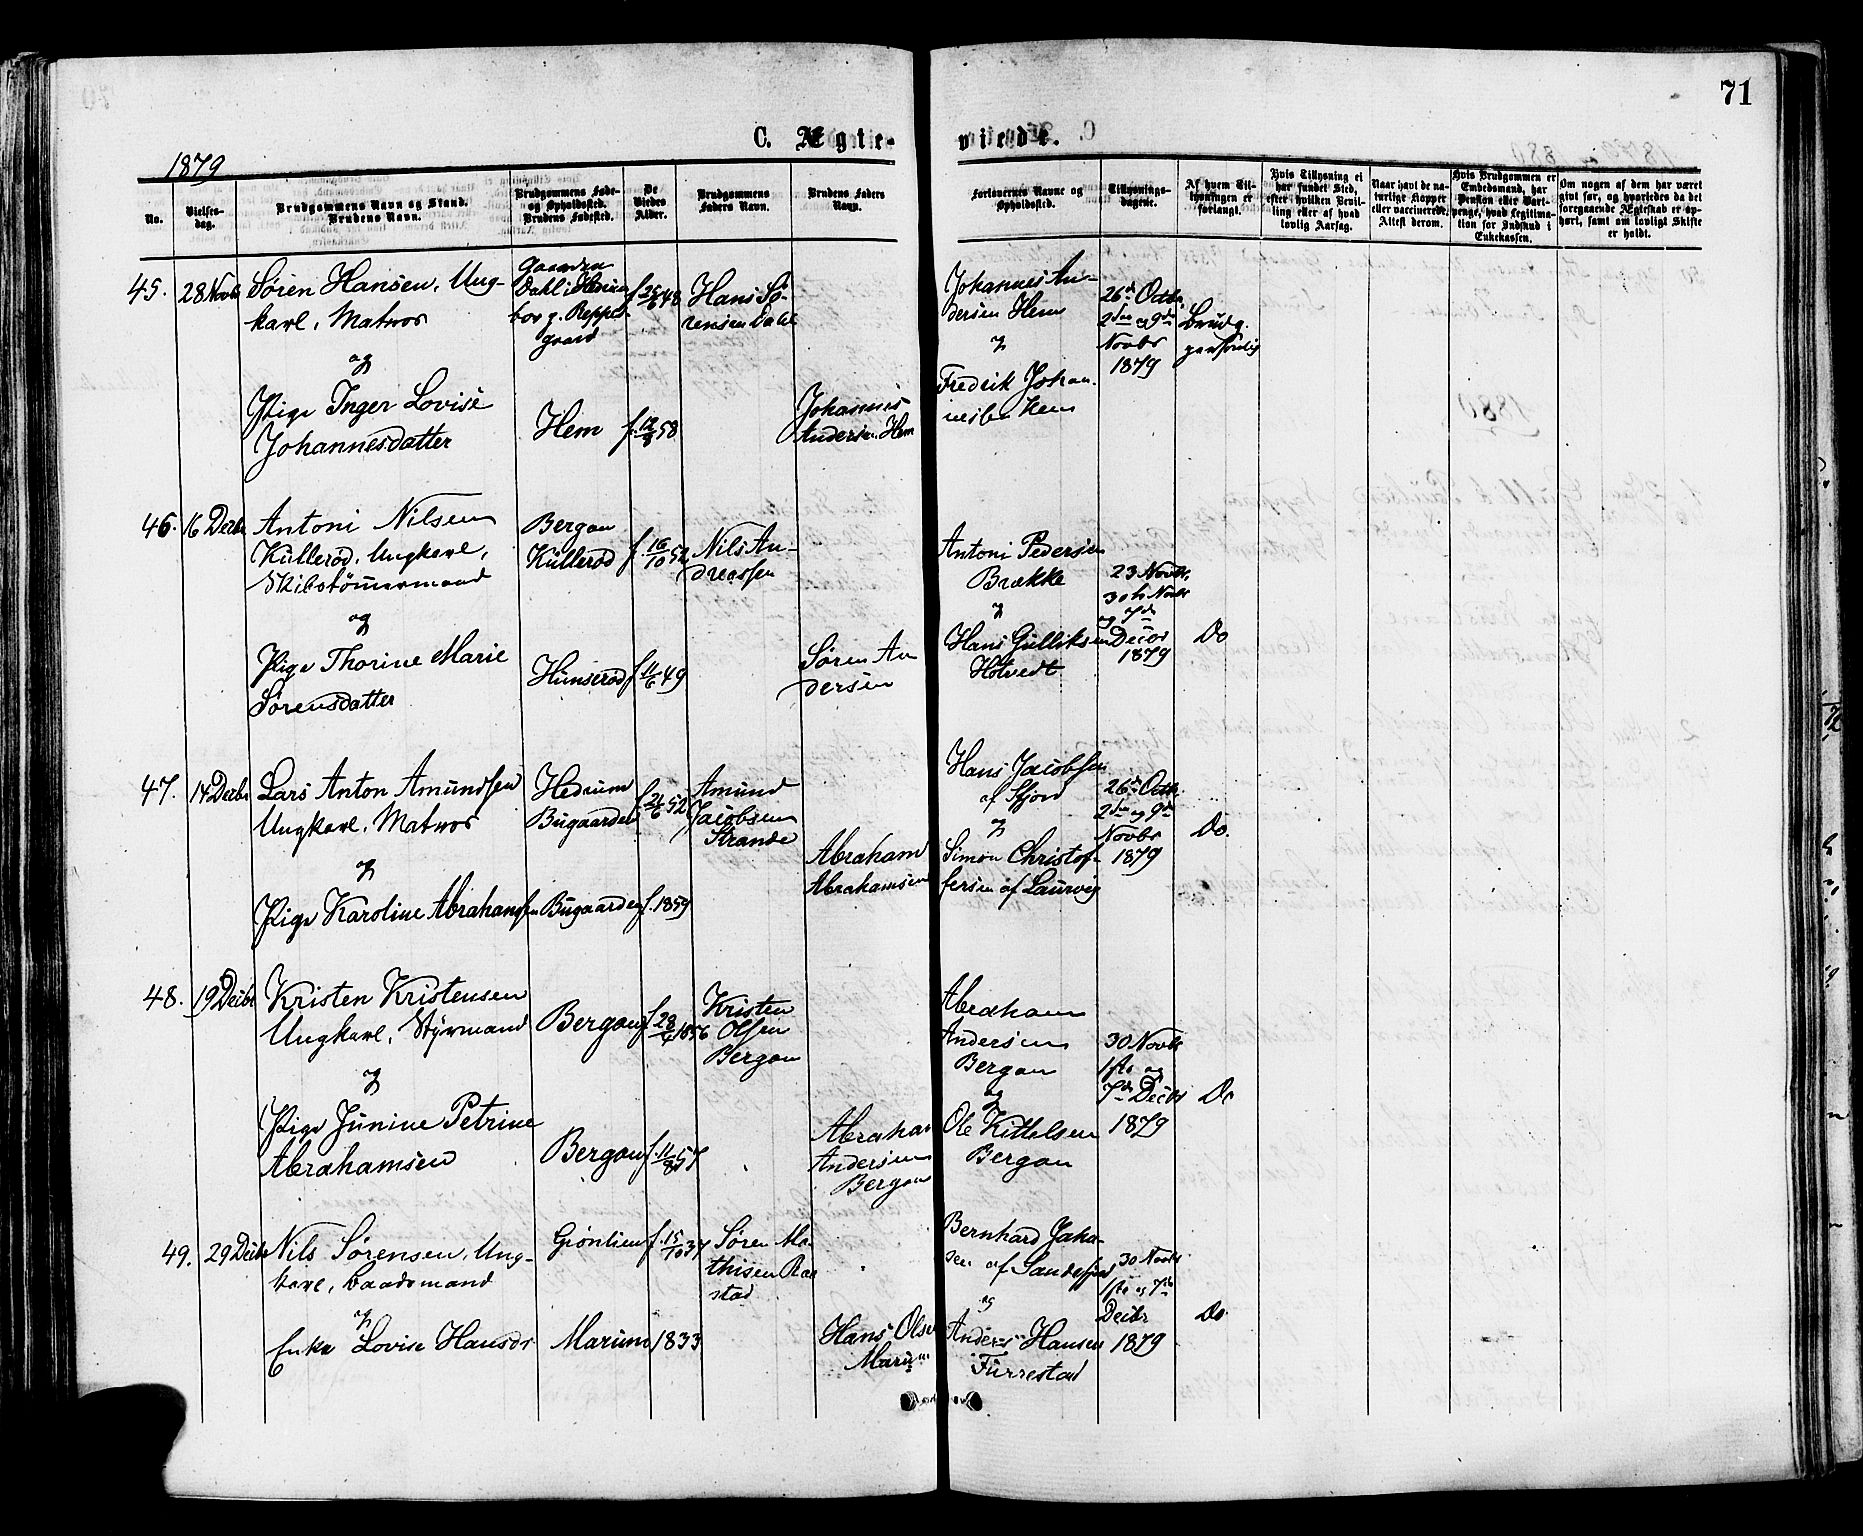 71
C. Ægte-
viede.
1879
No.
Vielses-
dag.
Brudgommens Navn og Stand.
Brudens Navn.
Brudgommens Føde-
og Opholdssted.
Brudens Fødested.
De
Viedes
Alder.
Brudgommens
Faders Navn.
Brudens Faders
Navn.
Forlovernes Navne og
Opholdssted.
Tillysnings-
dagene.
Af hvem Til-
lysningen er
forlangt.
Hvis Tillysning ei
har fundet Sted,
efter hvilken Bevil-
ling eller af hvad
lovlig Aarsag.
Naar havt de na-
turlige Kopper
eller vaccinerede.
Attest derom.
Hvis Brudgommen er
Embedsmand, har
Pension eller Vart-
penge, hvad Legitima-
tion for Indskud i
Enkekassen.
Om nogen af dem har været
givt før, og hvorledes da det
foregaaende Ægteskab er op-
hørt, samt om lovligt Skifte
er holdt.
45. 28 Novbr
Søren Hansen, Ung-
karl, Matros
og
Pige Inger Lovise
Johannesdatter
Dahl i
gaard
Hem
f. 25/6 48
f. 12/3 58
Hans Sø-
rensen Dahl
Johannes
Andersen Hem
Johannes An-
dersen Hem
og
Fredrik Johan-
nesen Hem
26de Octbr,
2den og 9de
Novbr
1879
Brudg.
personlig
46. 16 Decbr
Antoni Nilsen
Kullerød, Ungkarl,
Skibstømmermand
og
Pige Thorine Marie
Sørensdatter
Bergan
Kullerød
Hunserød
f. 16/10 52
f. 11/6 49
Nils An-
dreassen
Søren An
dersen
Antoni Pedersen
Brække
og
Hans Gulliksen
Hotvedt
23 Novbr,
30te Novbr
og 7de
Decbr
1879
Do
47. 14 Decbr
Lars Anton Amundsen
Ungkarl, Matros
og
Pige Karoline Abrahamsen
Hedrum
Bugaarden
Bugaarden
f. 21/6 52
f. 1859
Amund
Jacobsen
Strande
Abraham
Abrahamsen
Hans Jacobsen
af Fjord
og
Simon Christof-
fersen af Laurvig
26de Octbr.
2den og 9de
Novbr
1879
Do.
48. 19 Decbr
Kristen Kristensen
Ungkarl, Styrmand
og
Pige Junine Petrine
Abrahamsen
Bergan
Bergan
f. 28/4 1856
f. 11/8 57
Kristen
Olsen
Bergan
Abraham
Andersen
Bergan
Abraham
Andersen
Bergan
og
Ole Kittelsen
Bergan
30 Novbr
1ste og
7de Decbr
1879
Do
49. 29 Decbr
Nils Sørensen, Ung-
karl, baadsmand
og
Enke Lovise Hansdr
Grønlien
Marum
f. 15/10 37
1833
Søren Ma-
thisen Raa
stad
Hans Olsen
Marum
Bernhard Jaka-
sen af Sandefjord
og
Anders Hansen
Furrestad
30 Novbr
1ste og 7de
Decbr
1879
Do.